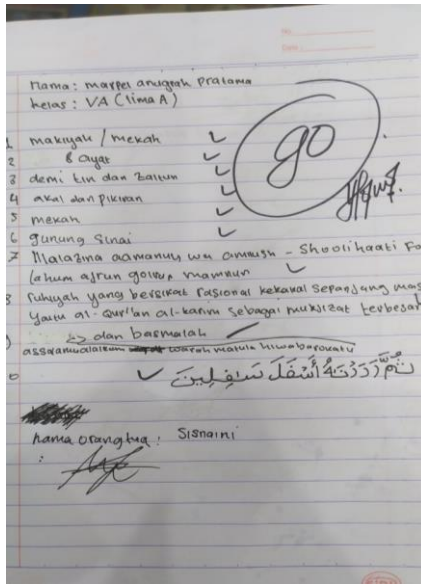 No.
Date:
Nama: marpel anugrah Pratama
kelas: VA (lima A)
go
1 makiyah / mekah
2 8 ayat
3 demi tin dan zaitun
4 akal dan pikiran
5 mekah
6 gunung Sinai
7 Illalazina aamanuu wa amilush - Shoolihaati Fa
lahum ajrun goirun mamnun
8 ruhiyah yang bersikat rasional kekakal sepanjang mas
yaitu al-Qur'an al-karim sebagai mukjizat terbesar
dan basmalah
assaramualaikum warohmatula hiwabarokatu
ثُمَّ رَدَدْنَهُ أَسْفَلَ سَافِلِينَ
nama orangtua: Sisnaini
: